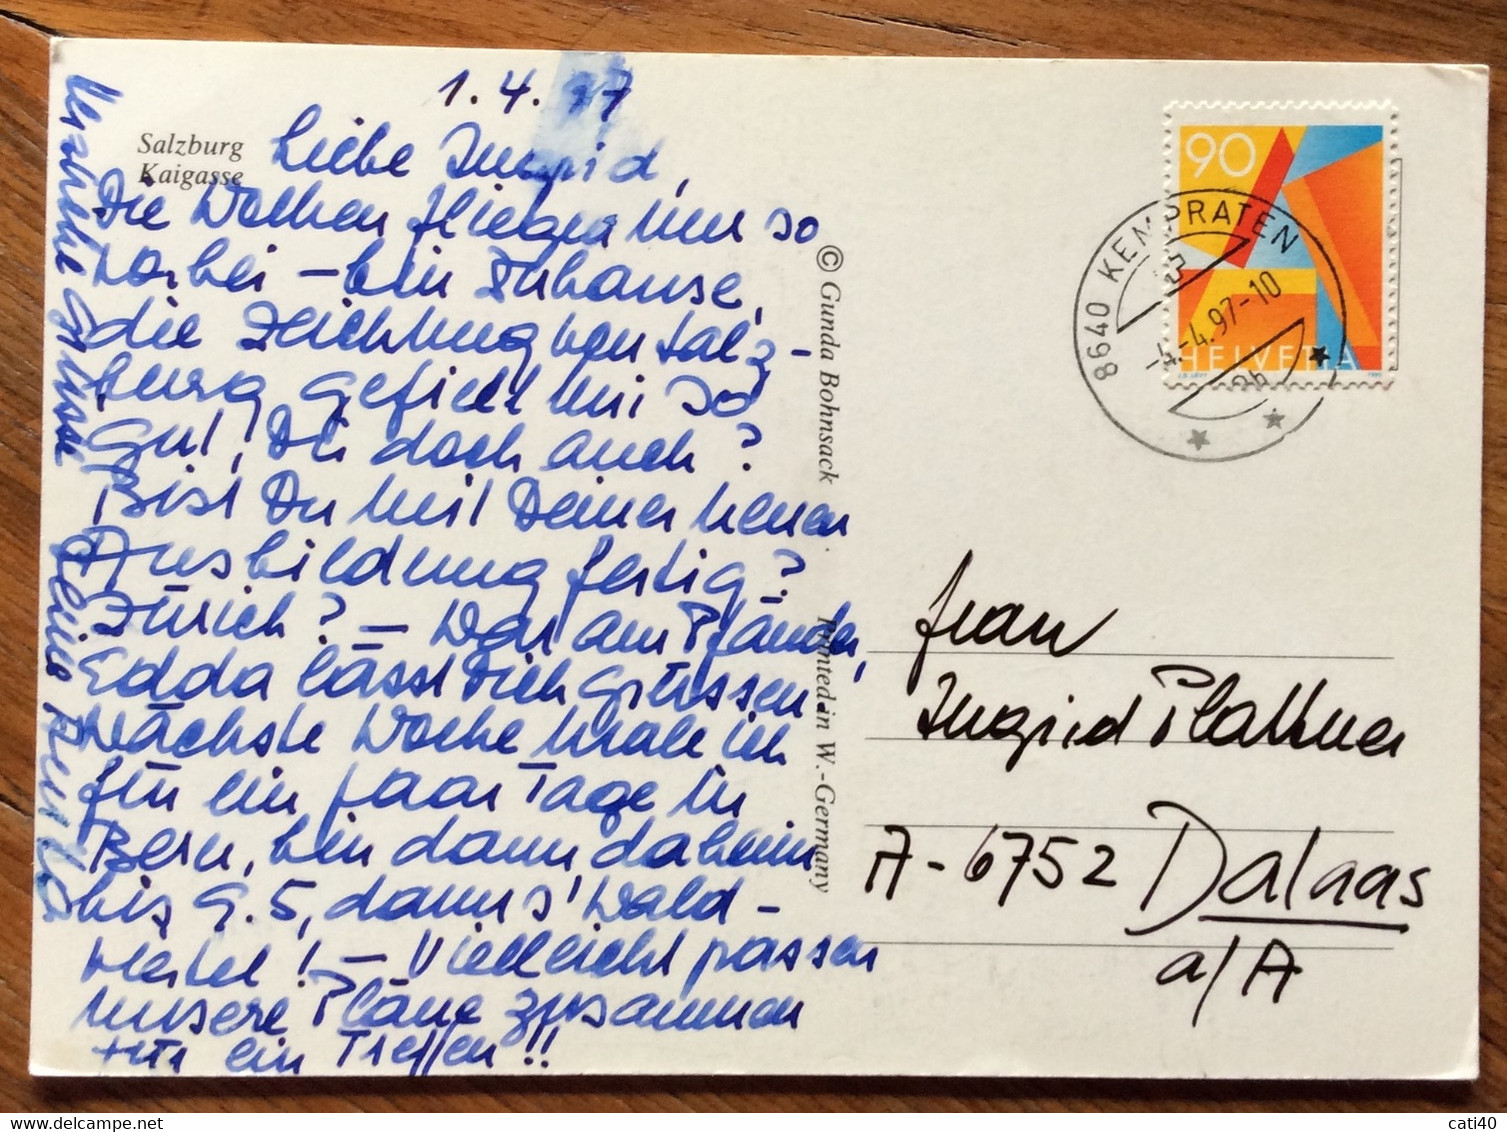 Salzburg
Kaigasse
1.4.97
Liebe Ingrid,
Die Wochen fliegen nur so
vorbei – bin Zuhause,
die Zeichnung von Salz-
burg gefiel mir so
gut, Dir doch auch?
Bist Du mit Deiner neuen
Ausbildung fertig?
Zürich? – War am Pfänder,
Edda lässt Dich grüssen
Nächste Woche male ich
für ein paar Tage in
Bern, bin dann daheim
bis 9.5, dann s'Wald-
! – Vielleicht passen
unsere Pläne zusammen
für ein Treffen!!
Herzliche Grüsse
Deine
© Gunda Bohnsack
Printed in W.-Germany
90
HELVETIA
8640 KEMPRATEN
-4.-4.97-10
Frau
Ingrid Plattner
A-6752 Dalaas
a/A
cati40